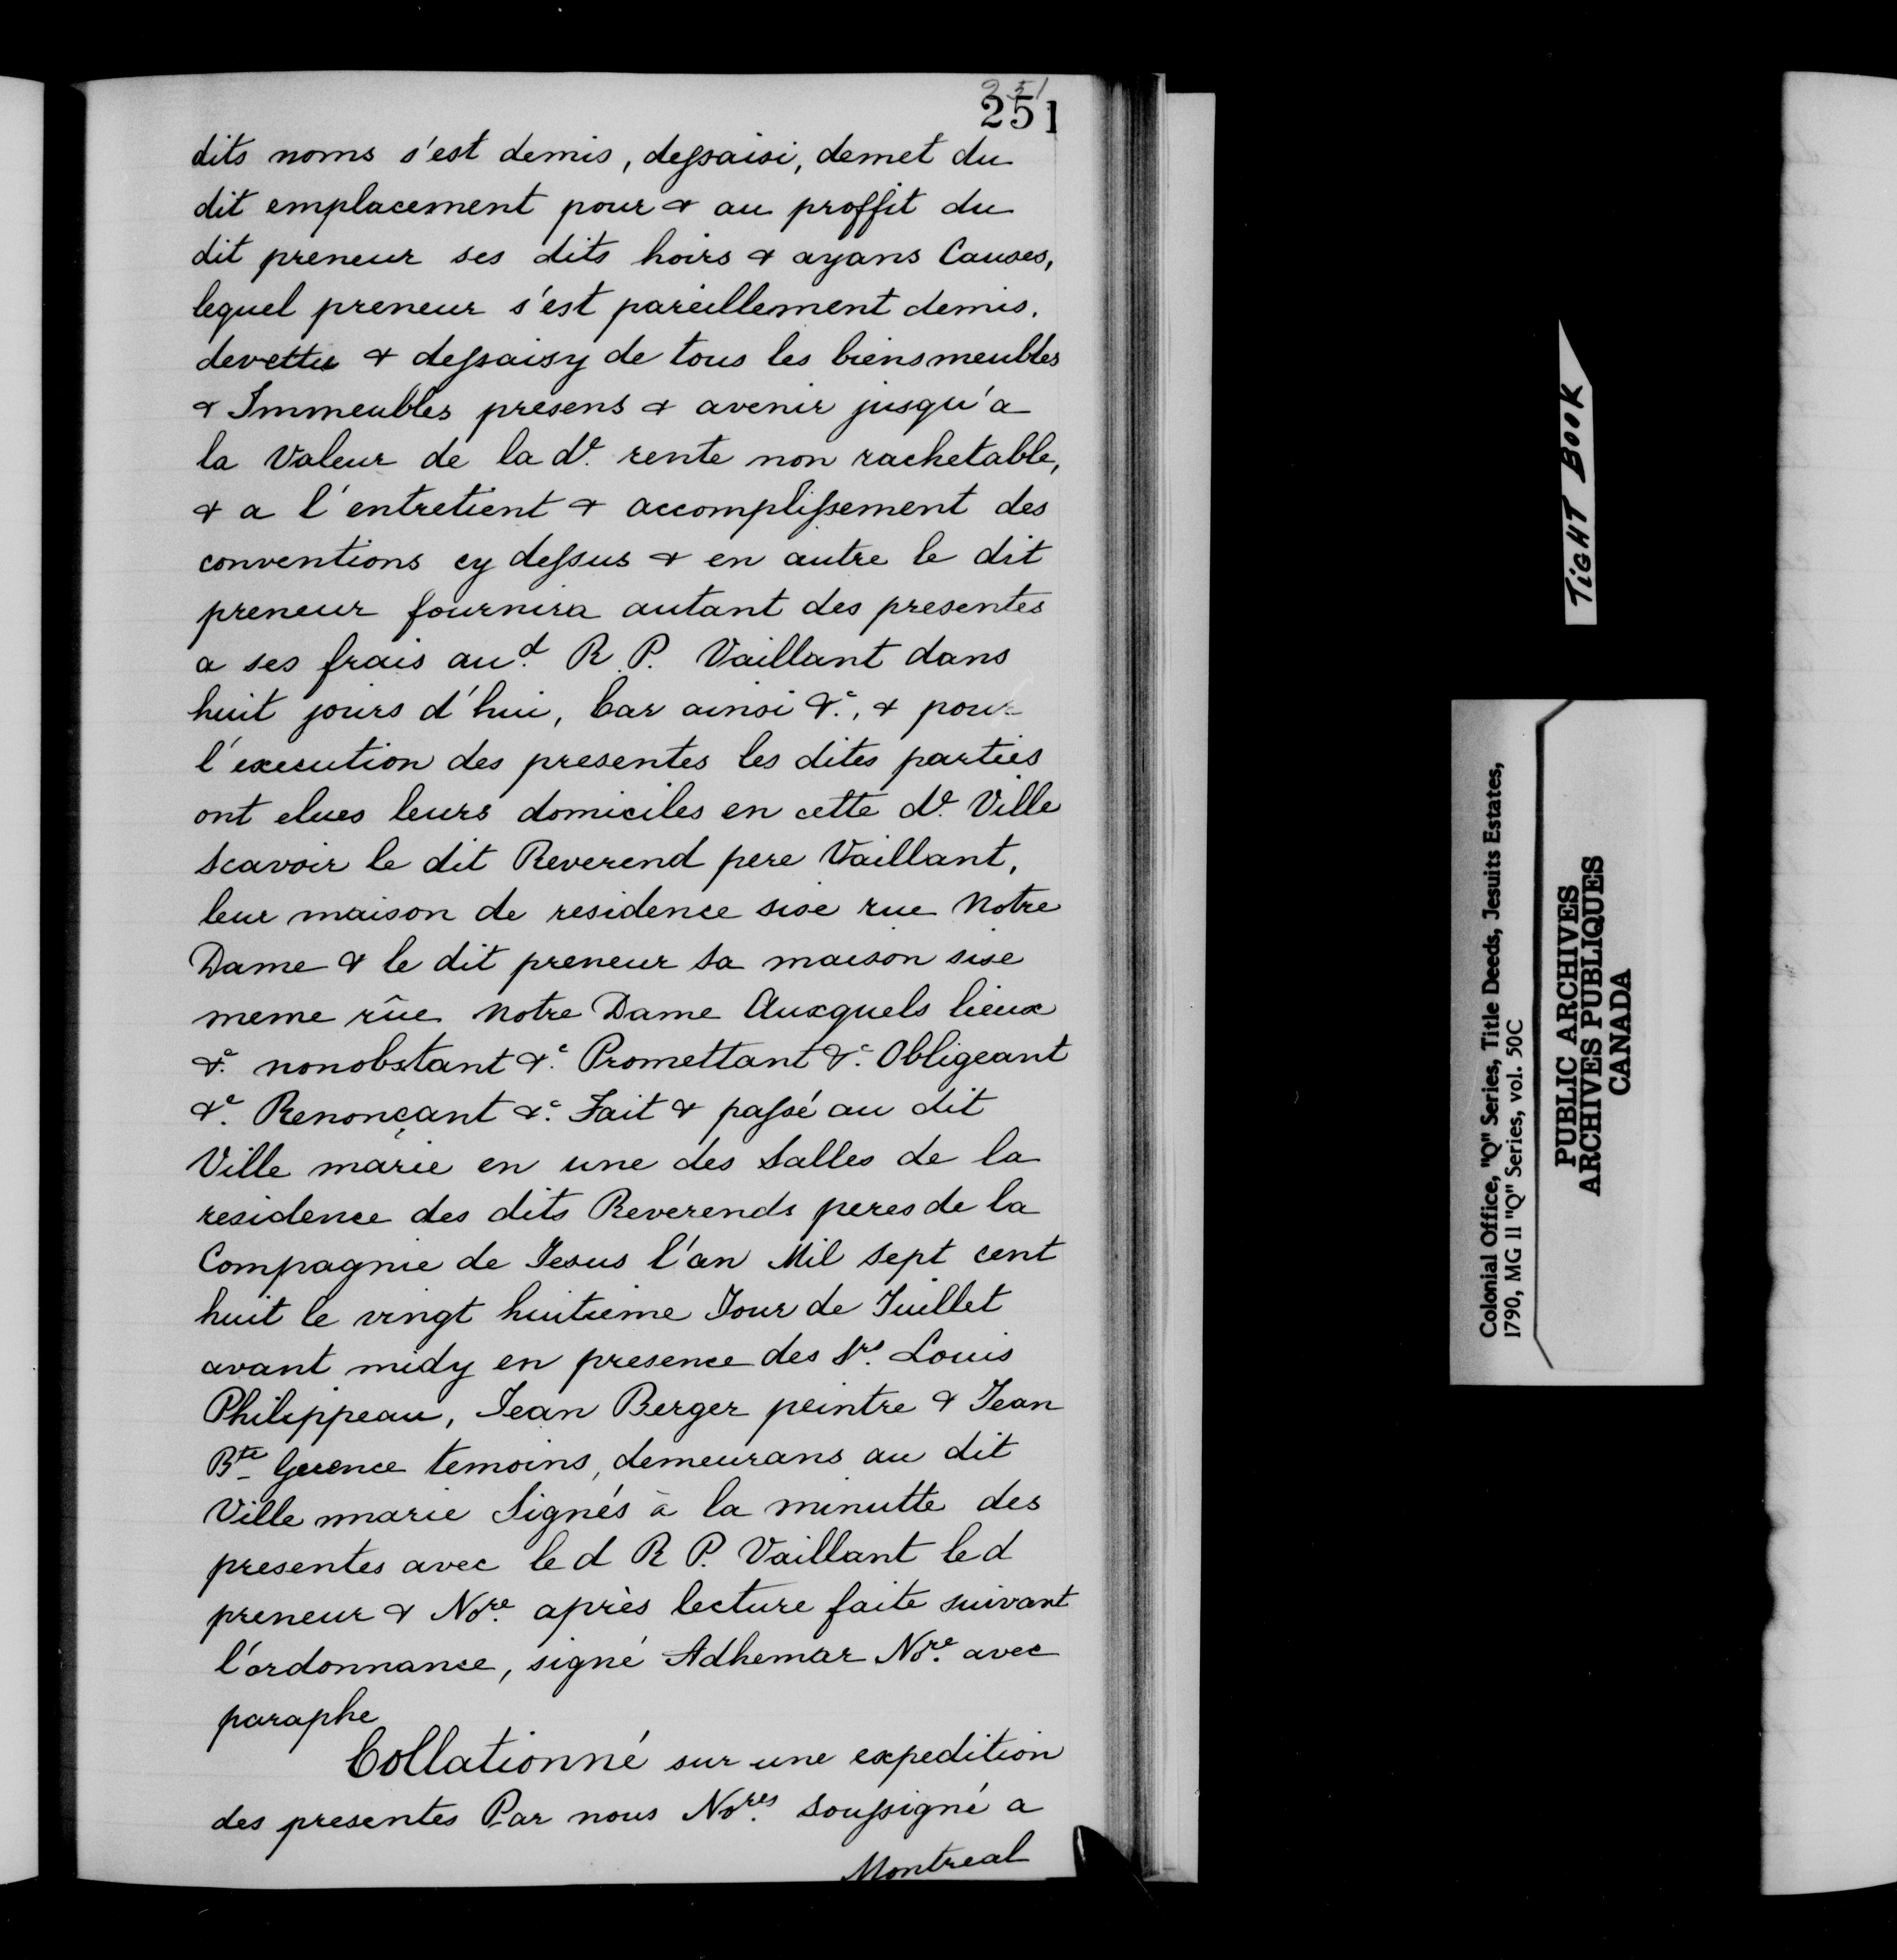 251
251
dits noms s'est demis, dessaisi, demet du
dit emplacement pour & au proffit du
dit preneur ses dits hoirs & ayans Causes,
lequel preneur s'est pareillement demis.
devettu & dessaisy de tous les biens meubles
& Immeubles presens & avenir jusqu'a
la Valeur de la de. rente non rachetable,
& a l'entretient & accomplissement des
conventions cy dessus & en autre le dit
preneur fournira autant des presentes
a ses frais aud. R. P. Vaillant dans
huit jours d'hui, Car ainsi &c., & pour
l'execution des presentes les dites parties
ont elues leurs domiciles en cette de. Ville
Scavoir le dit Reverend pere Vaillant,
leur maison de residence sise rue Notre
Dame & le dit preneur sa maison sise
meme rûe Notre Dame Auxquels lieux
&c. nonobstant &c. Promettant &c. Obligeant
&c. Renonçant &c. Fait & passé au dit
Ville marie en une des Salles de la
residence des dits Reverends peres de la
Compagnie de Jesus l'an Mil Sept cent
huit le vingt huitieme Jour de Juillet
avant midy en presence des Srs. Louis
Philippeau, Jean Berger peintre & Jean
Bte Gerence temoins, demeurans au dit
Ville marie Signés à la minutte des
presentes avec le d R P. Vaillant le d
preneur & Nore. après lecture faite suivant
l'ordonnance, signé Adhemar Nore. avec
paraphe
Collationné sur une expedition
des presentes Par nous Nores. Soussigné a
Montreal
TIGHT BOOK
Colonial Office, "Q" Series, Title Deeds, Jesuits Estates,
1790, MG 11 "Q" Series, vol. 50C
PUBLIC ARCHIVES
ARCHIVES PUBLIQUES
CANADA